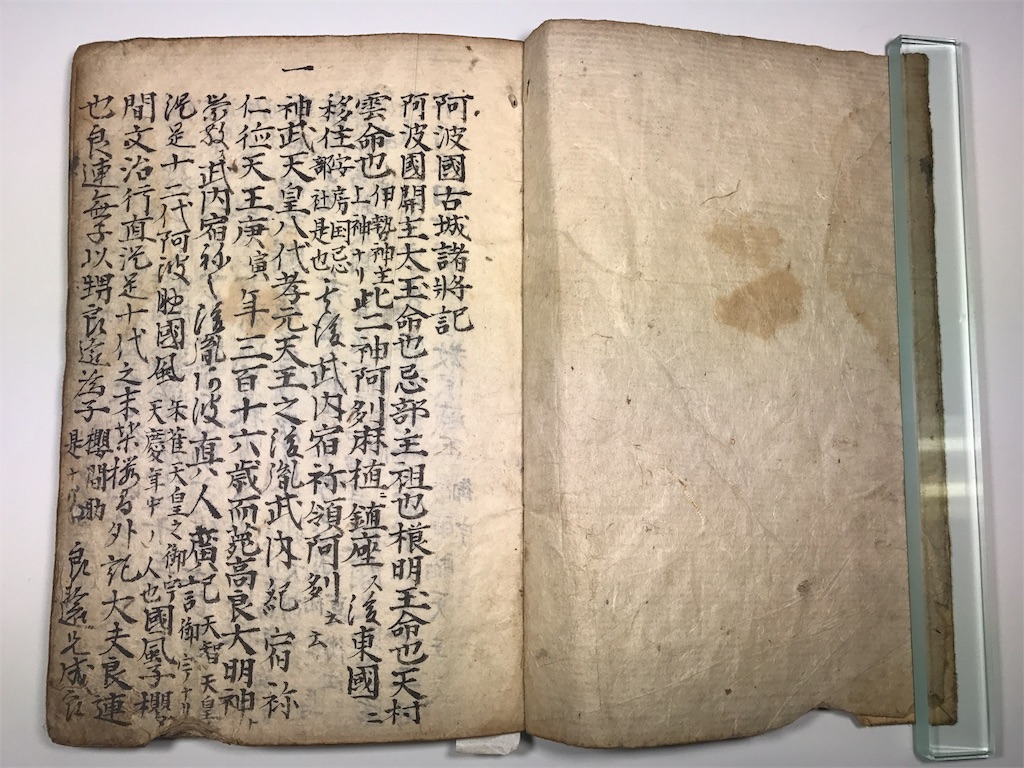 一
阿波國古城諸將記
阿波國開主太玉命也忌部主祖也槙明玉命也天村
雲命也伊勢神主上神ナリ此二神阿刕麻植ニ鎮座ス後東國ニ
移住安房国忌部社是也其後武内宿祢領阿刕云云
神武天皇八代孝元天王之後胤武内紀宿祢
仁徳天王庚寅年三百十六歳而薨高良大明神ト
崇敬武内宿祢之後胤阿波真人廣記天智天皇御宇ナリ
況足十二代阿波國風朱雀天皇之御宇天慶年中ノ人也國風子櫻
間文治行直況足十代之末柴桜間外記大夫良連
也良連無子以甥良遠為子櫻間助是ナリ良成良